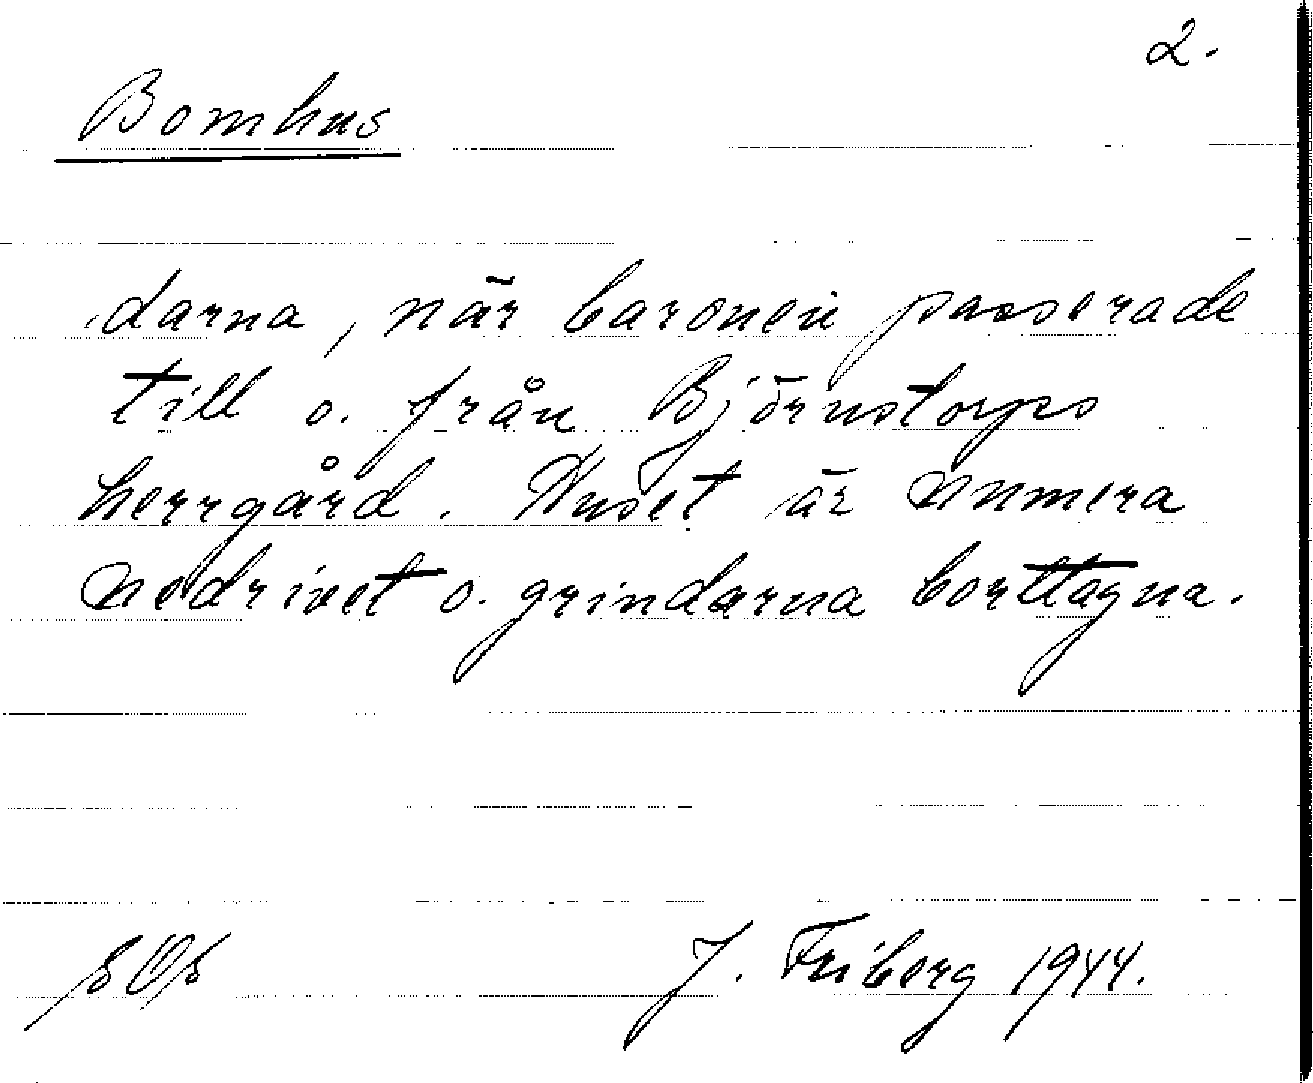 2.
Bomhus
darna, när baronen passerade
till o. från Björnstorps
herrgård. Huset är numera
nedrivet o. grindarna borttagna.
J. Friberg 1944.